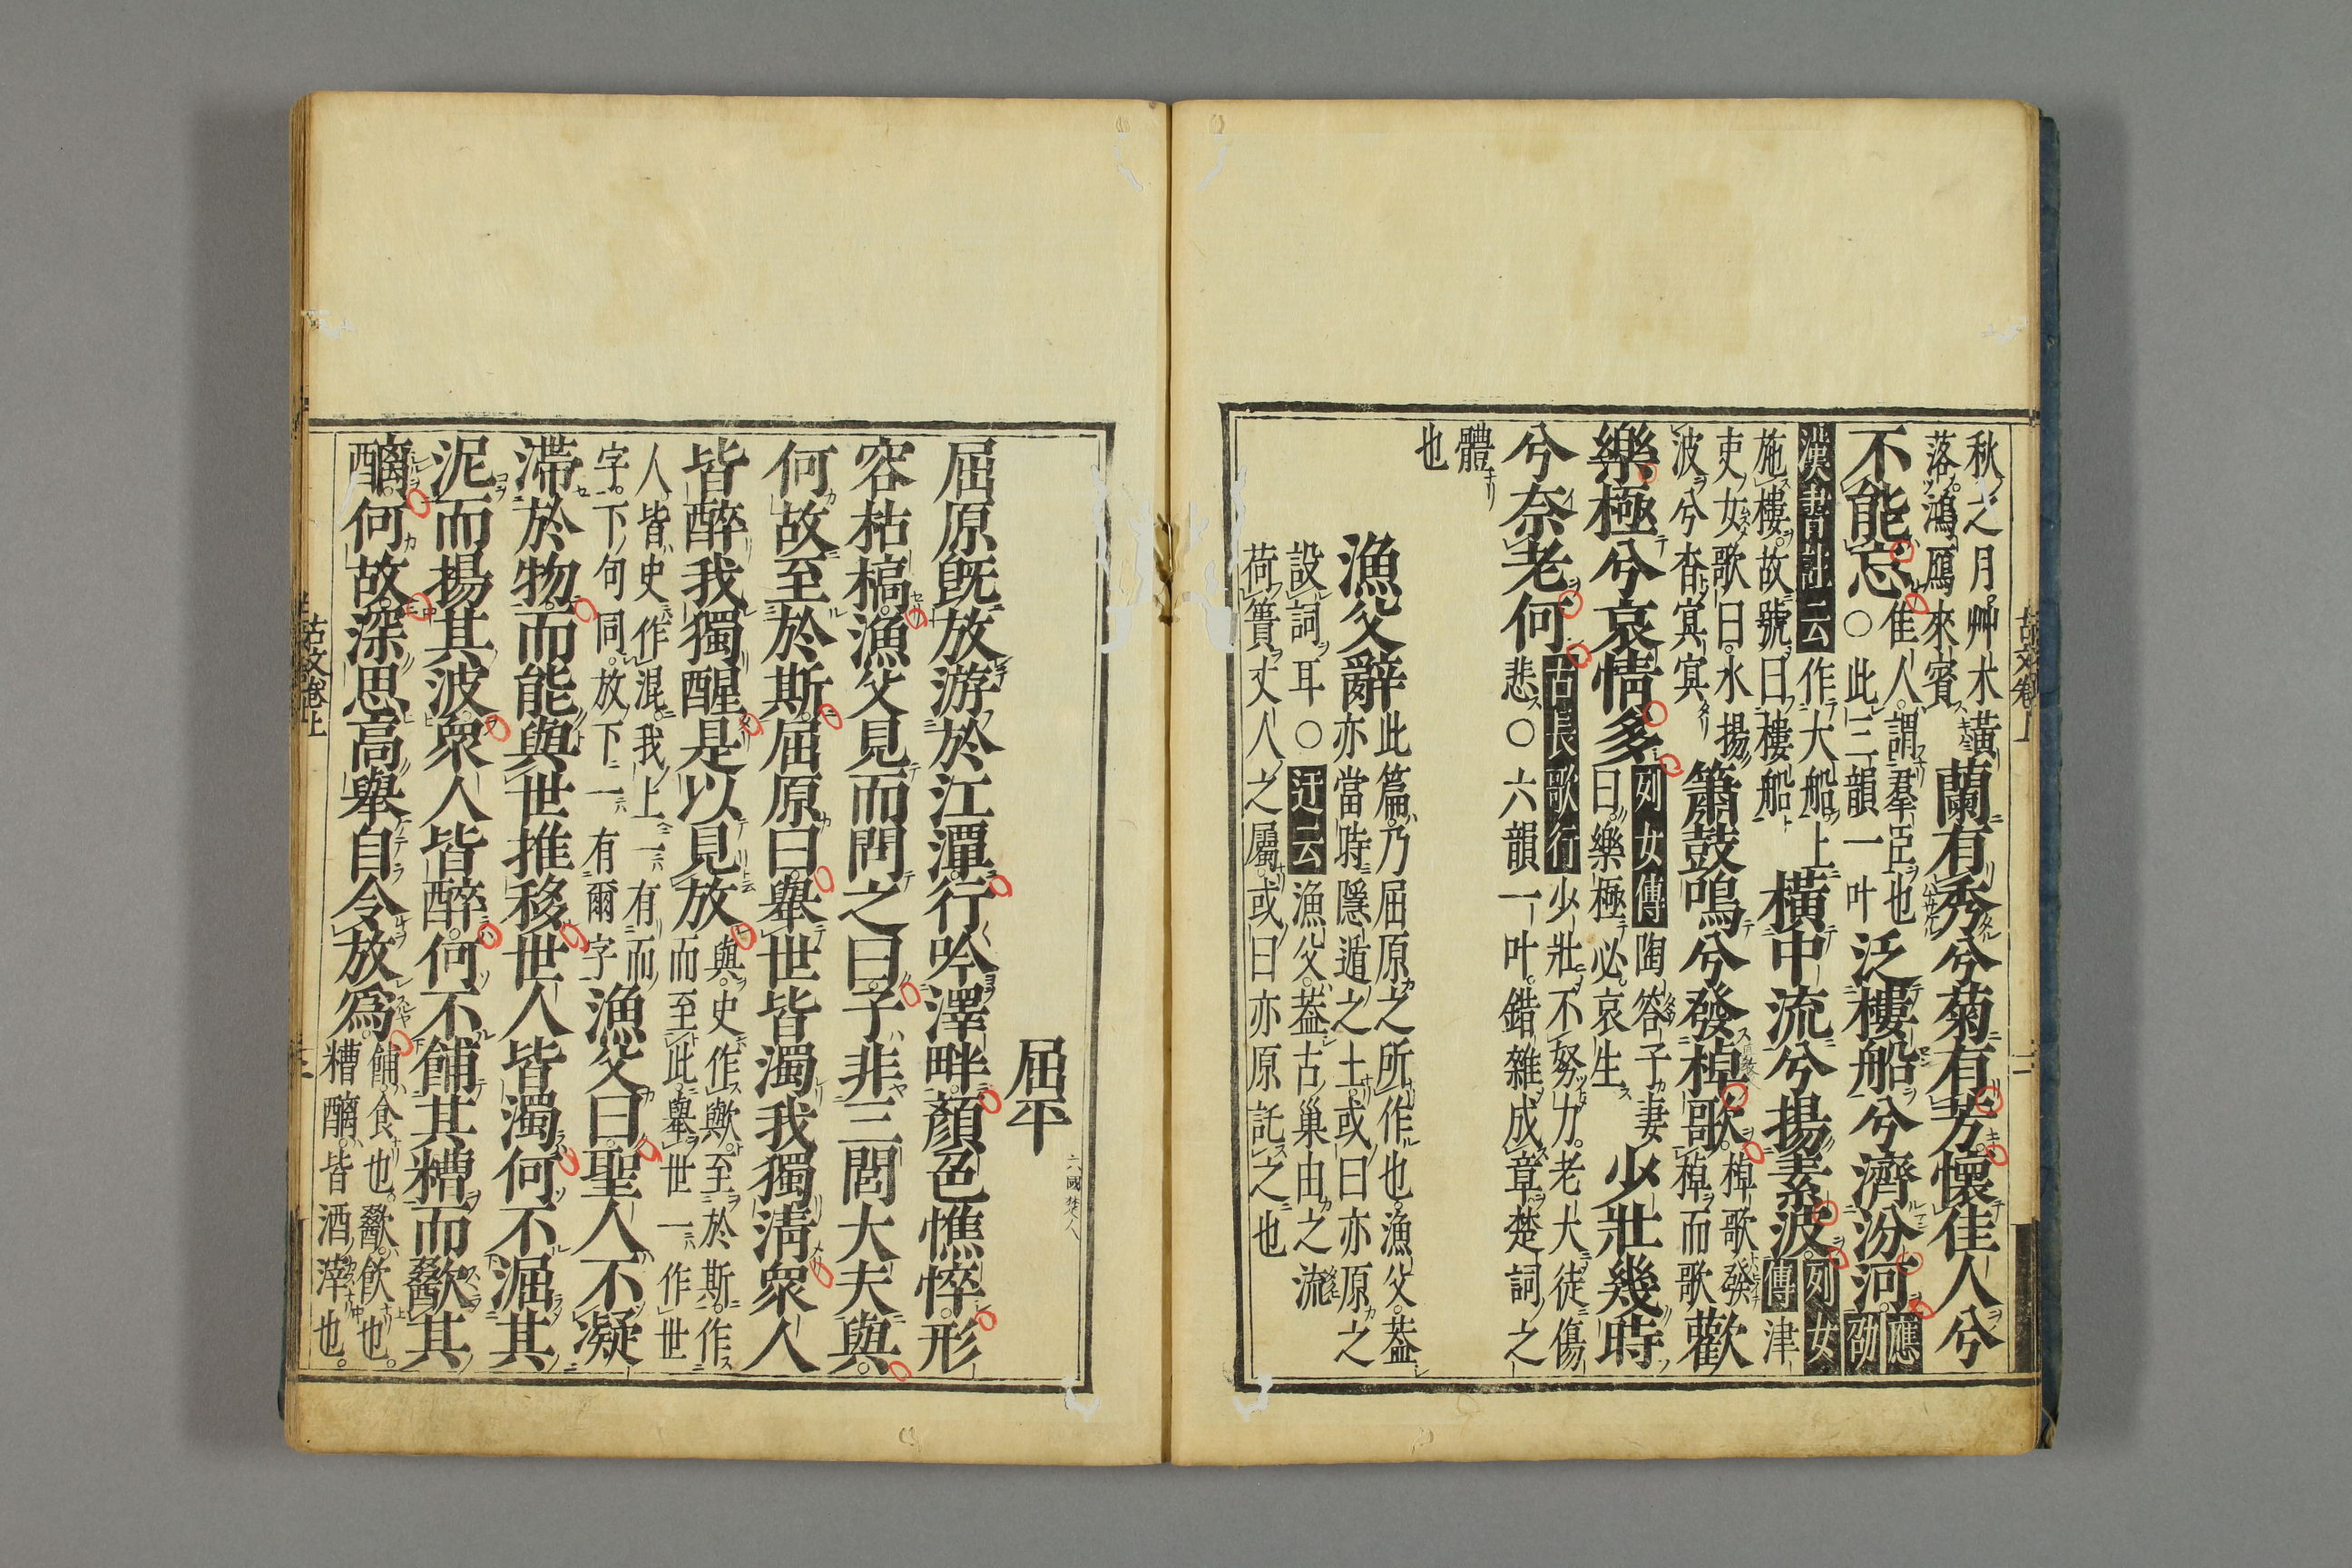 秋之月艸木黃
落鴻鴈來賓
蘭有秀兮菊有芳懷佳人兮
不能忘
佳人謂羣臣也
○此三韻一叶
泛樓船兮濟汾河
應
劭
漢書註云作大船上
施樓故號曰樓船
橫中流兮揚素波
列女
傳津
吏女歌曰水揚
波兮杳冥冥
簫鼓鳴兮發棹歌
棹歌發
棹而歌
歡
樂極兮哀情多
列女傳陶答子妻
曰樂極必哀生
少壯幾時
兮奈老何
古長歌行少壯不努力老大徒傷
悲○六韻一叶錯雜成章楚詞之
體
也
漁父辭
此篇乃屈原之所作也漁父蓋
亦當時隱遁之士或曰亦原之
設詞耳○迂云漁父蓋古巢由之流
荷蕢丈人之屬或曰亦原託之也
古文卷上
二
屈平
六國楚人
屈原既放游於江潭行吟澤畔顏色憔悴形
容枯槁漁父見而問之曰子非三閭大夫與
何故至於斯屈原曰舉世皆濁我獨淸衆人
皆醉我獨醒是以見放
與史作歟至於斯作
而至此舉世一作世
人皆史作混我上一有而
字下句同放下一有爾字
漁父曰聖人不凝
滯於物而能與世推移世人皆濁何不淈其
泥而揚其波衆人皆醉何不餔其糟而歠其
醨何故深思高舉自令放爲
餔食也歠飮也
糟醨皆酒滓也
古文卷上
三